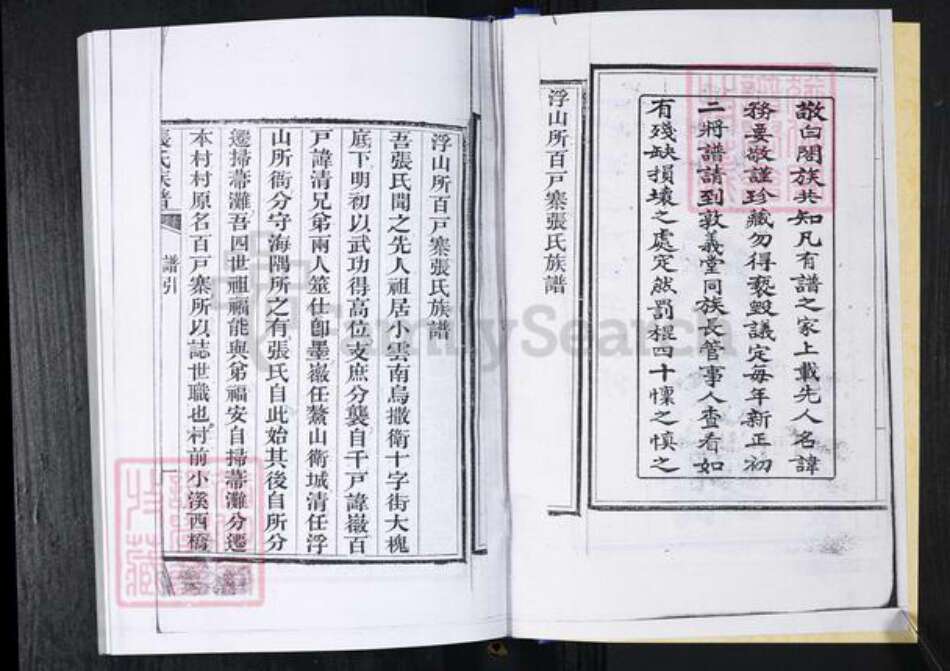 敬白閤族共知凡有譜之家上載先人名諱
務要敬謹珍藏勿得褻毀議定每年新正初
二將譜請到敦義堂同族長管事人查看如
有殘缺損壞之處定然罰棍四十懍之慎之
浮山所百戸寨張氏族譜
浮山所百戸寨張氏族譜
吾張氏聞之先人祖居小雲南烏撒衛十字街大槐
底下明初以武功得高位支庶分襲自千戸諱嶽百
戸諱清兄弟兩人筮仕卽墨嶽任鰲山衛城清任浮
山所衙分守海隅所之有張氏自此始其後自所分
遷掃菷灘吾四世祖福能與弟福安自掃菷灘分遷
本村村原名百戸寨所以誌世職也村前小溪西橋
張氏族譜
譜引
一
FamilySearch